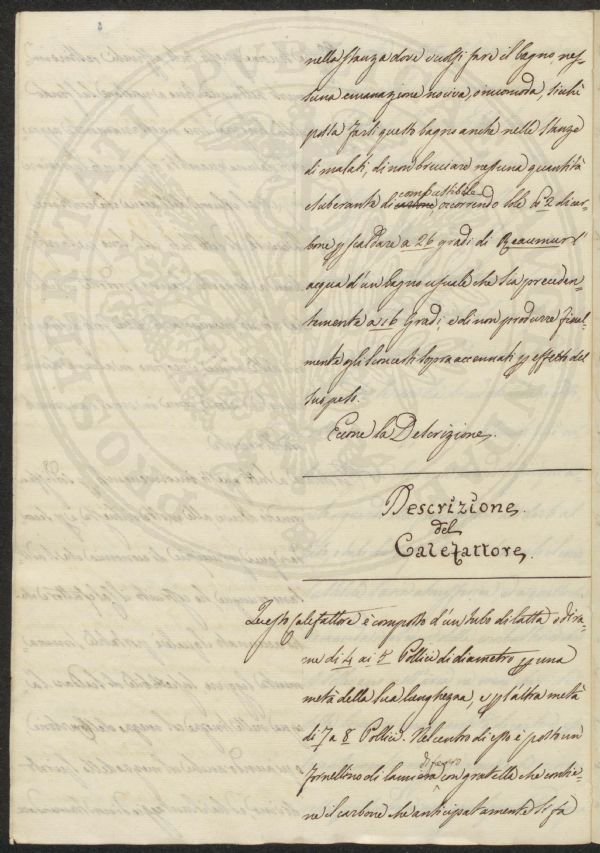 nella stanza dove vuolsi fare il bagno nes-
suna emanazione nociva, o incomoda, sicchè
possa farsi questo bagno anche nelle stanze
di malati, di non bruciare nessuna quantità
esuberante di combustibile, occorrendo sole di 2 di car-
bone p scaldare a 26 gradi di Reaumur l'
acqua d'un bagno usuale che sia preceden-
temente a 16 Gradi e di non produrre final-
mente gli sconcerti sopra accennati p effetto del
suo peso.
Eccone la Descrizione.
Descrizione
del
Calefattore.
Questo Calefattore è composto d'un tubo di latta o di ra-
me di 4 ai 5 Pollici di diametro p una
metà della sua lunghezza, e p l'altra metà
di 7 a 8 Pollici. Nel centro di esso è posto un
fornellino di lamiera di ferro con gratella che contie-
ne il carbone che anticipatamente si fà